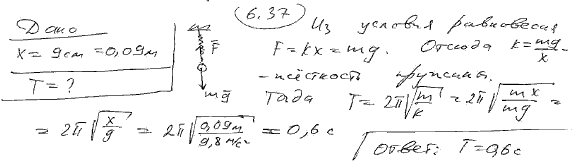 6.37
Дано
x = 9см = 0,09м
T = ?
F̄
mḡ
Из условия равновесия
F = kx = mg. Отсюда k = mg/x -
- жёсткость пружины.
Тогда T = 2π√(m/k) = 2π√(mx/mg) =
= 2π√(x/g) = 2π√(0,09м/9,8м/с²) = 0,6 с
Ответ: T = 0,6с